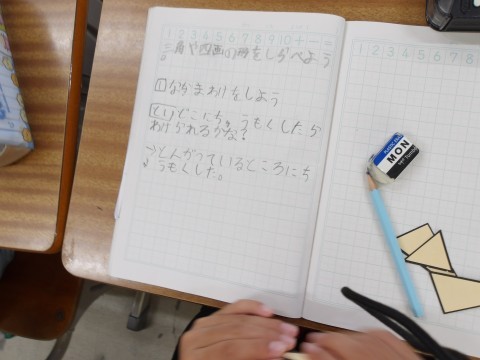 1 2 3 4 5 6 7 8 9 10 + - =
三角や四画の形をしらべよう
。
1 なかまわけをしよう
とい どこにちゅうもくしたら
わけられるかな?
→とんがっているところにち
ゅうもくした。
1 2 3 4 5 6 7 8
MONO